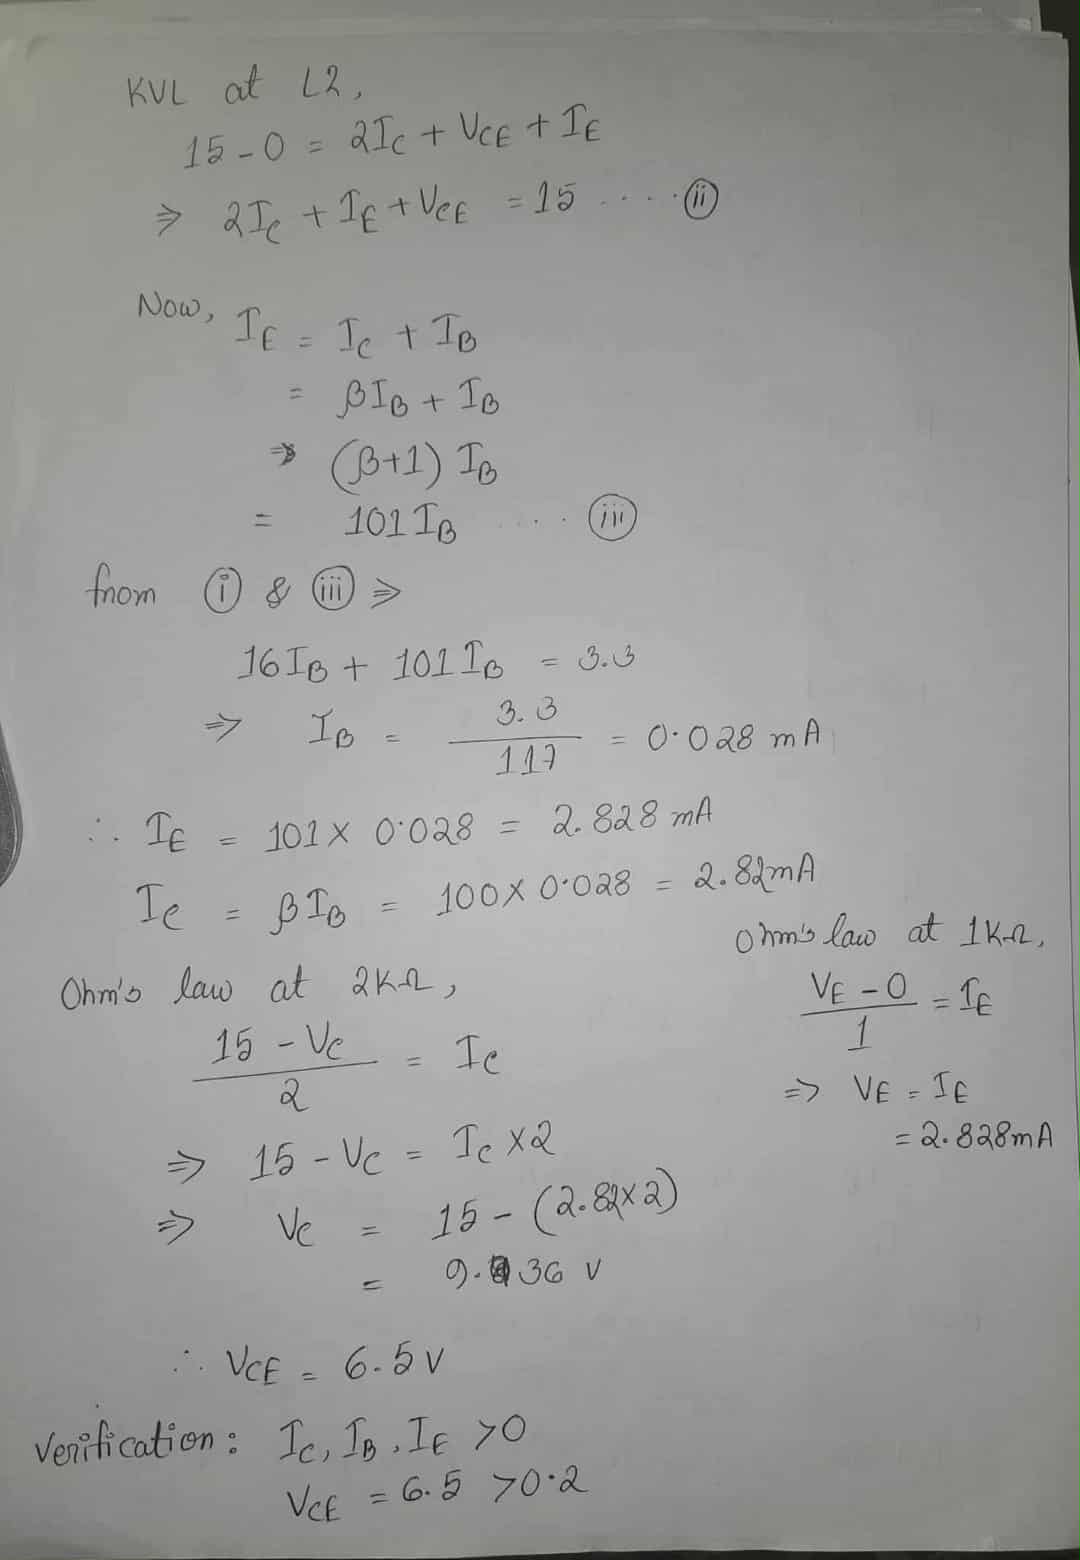 KVL at L2,
15 - 0 = 2I_C + V_CE + I_E
⇒ 2I_C + I_E + V_CE = 15 .... (ii)
Now, I_E = I_C + I_B
= βI_B + I_B
⇒ (β+1) I_B
= 101 I_B .... (iii)
from (i) & (iii) ⇒
16 I_B + 101 I_B = 3.3
⇒ I_B = 3.3 / 117 = 0.028 mA
∴ I_E = 101 × 0.028 = 2.828 mA
I_C = βI_B = 100 × 0.028 = 2.82mA
Ohm's law at 2KΩ,
(15 - V_C) / 2 = I_C
⇒ 15 - V_C = I_C × 2
⇒ V_C = 15 - (2.82×2)
= 9.36 V
Ohm's law at 1KΩ,
(V_E - 0) / 1 = I_E
⇒ V_E = I_E
= 2.828mA
∴ V_CE = 6.5 V
Verification : I_C, I_B, I_E >0
V_CE = 6.5 >0.2